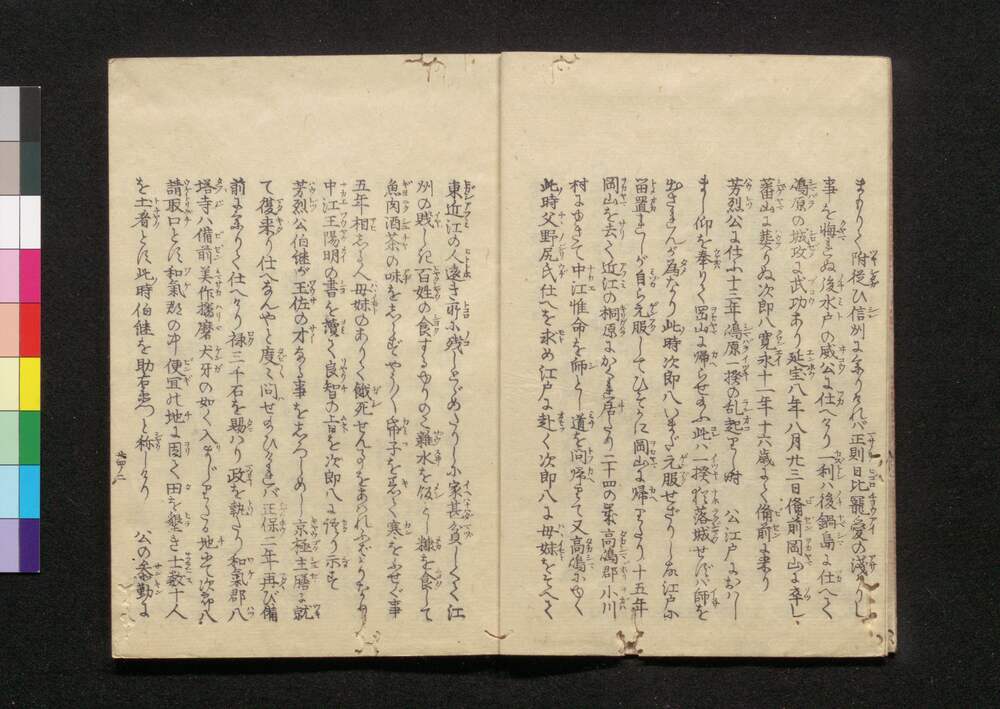 まりりく附従ひ信州に至りけれバ正則日比寵愛の浅かりし
事を悔ミぬ後水戸の威公に仕へけり一利ハ後鍋島に仕へて
嶋原の城攻に武功あり延宝八年八月廿三日備前岡山に卒し
蕃山に葬りぬ次郎八寛永十一年十六歳にて備前に来り
芳烈公に仕ふ十三年嶋原一揆の乱起りし時 公江戸におハし
まし仰を奉りて岡山に帰らせ給ふ此ハ一揆の落城せバ師を
出さまんが為なり此時次郎八いまだ元服せざりし故江戸に
留置まし自ら元服してひそかに岡山に帰りたり十五年
岡山を去て近江の桐原にかくれ居たり二十四の歳高嶋郡小川
村にゆきて中江惟命を師とし道を問帰りて又高嶋にゆく
此時父野尻氏仕へを求め江戸に赴く次郎八に母妹をそへて
東近江の人遠き所に残しとゞめたりしに家甚貧しくして江
州の賤しき百姓の食するゆりの雑水を飯とし糠を食して
魚肉酒茶の味をしらずやう〳〵帋子を着て寒をふせぐ事
五年相しる人母妹のありて餓死せんずるをあハれふばかりなり
中江王陽明の書を讀て良智の旨を次郎八に語り示す
芳烈公伯継が王佐の才ある事をしろしめし京極主膳に就
て復来り仕へなんやと度々問せ給ひけれバ正保二年再び備
前に来りて仕へけり禄三千石を賜ハり政を執たり和氣郡八
塔寺ハ備前美作播磨犬牙の如く入まじりたる地也次郎八
請取口とに和氣郡の中便宜の地に固く田を墾き士数十人
を土着とす此時伯継を助右衛門と称しけり 公の参勤に